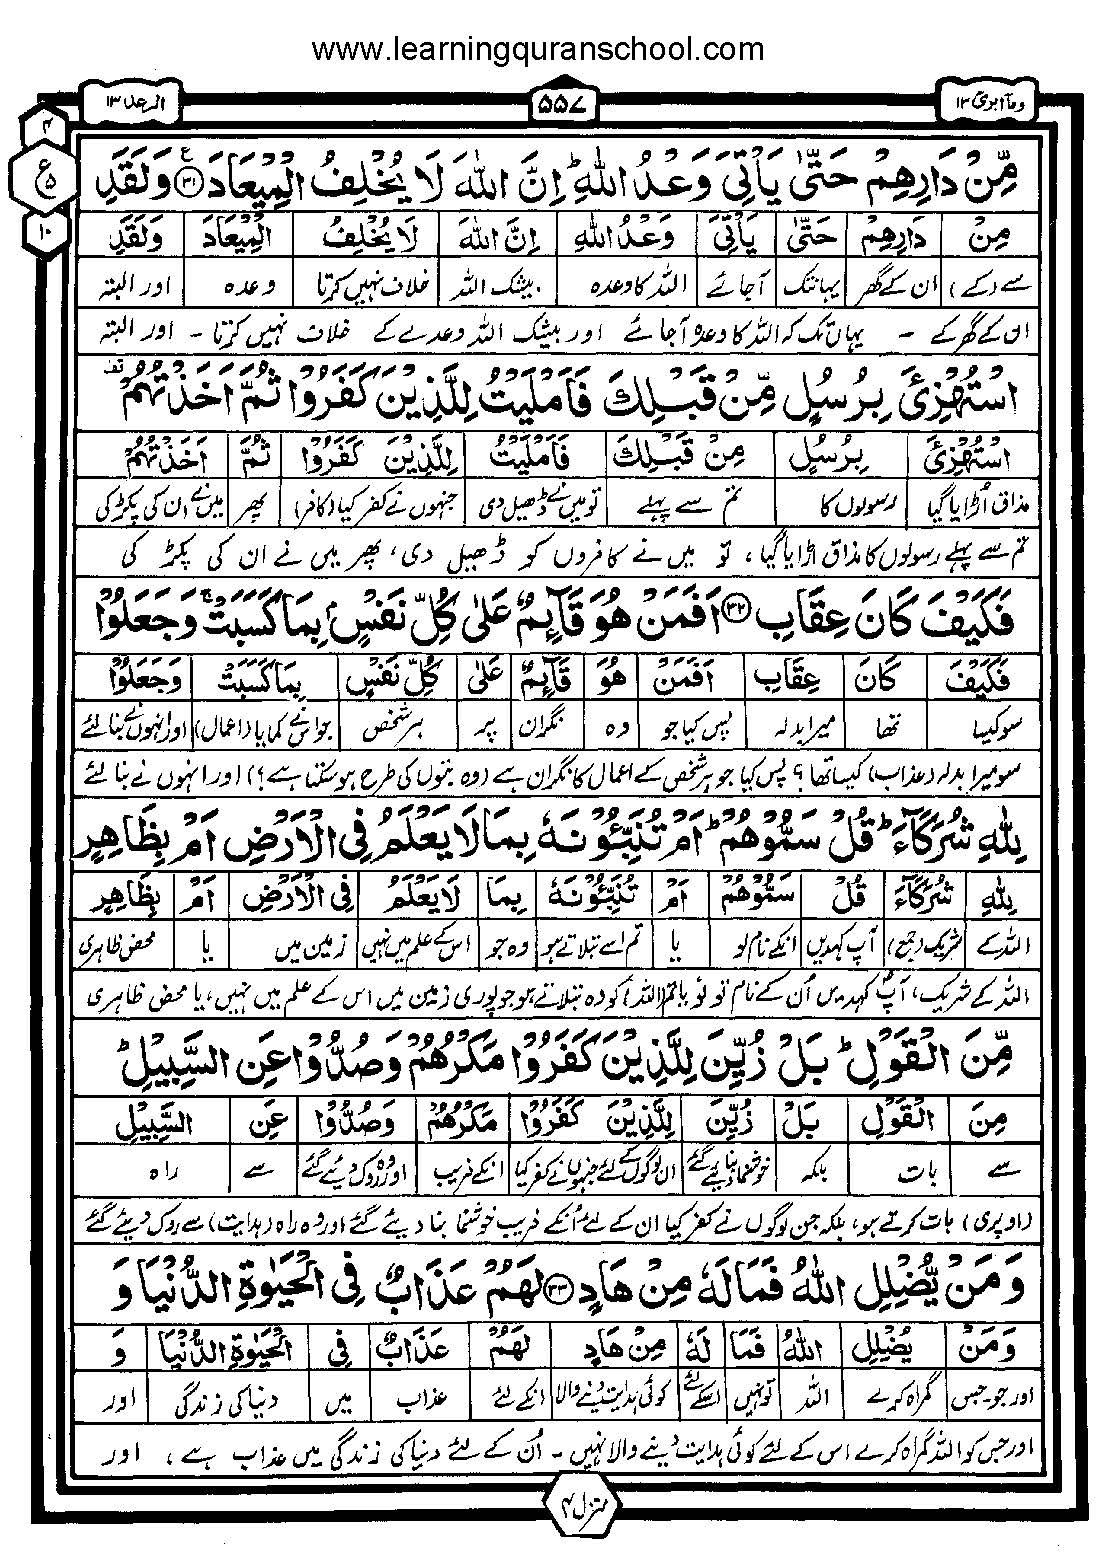 www.learningquranschool.com
وما ابرئ ١٣
٥٥٧
الرعد ١٣
٤
ع
٥
١٠
مِّنْ دَارِهِمْ حَتّٰى يَاْتِيَ وَعْدُ اللّٰهِ ؕ اِنَّ اللّٰهَ لَا يُخْلِفُ الْمِيْعَادَ ﴿٣١﴾ وَلَقَدِ
مِنْ دَارِهِمْ حَتّٰى يَاْتِيَ وَعْدُ اللّٰهِ اِنَّ اللّٰهَ لَا يُخْلِفُ الْمِيْعَادَ وَلَقَدِ
سے (کے) ان کے گھر یہانتک آجائے اللہ کا وعدہ بیشک اللہ خلاف نہیں کرتا وعدہ اور البتہ
ان کے گھر کے - یہاں تک کہ اللہ کا وعدہ آجائے اور بیشک اللہ وعدے کے خلاف نہیں کرتا - اور البتہ
اسْتُهْزِئَ بِرُسُلٍ مِّنْ قَبْلِكَ فَاَمْلَيْتُ لِلَّذِيْنَ كَفَرُوْا ثُمَّ اَخَذْتُهُمْ
اسْتُهْزِئَ بِرُسُلٍ مِنْ قَبْلِكَ فَاَمْلَيْتُ لِلَّذِيْنَ كَفَرُوْا ثُمَّ اَخَذْتُهُمْ
مذاق اُڑایا گیا رسولوں کا تم سے پہلے تو میں نے ڈھیل دی جنہوں نے کفر کیا (کافر) پھر میں نے ان کی پکڑ کی
تم سے پہلے رسولوں کا مذاق اڑایا گیا، تو میں نے کافروں کو ڈھیل دی، پھر میں نے ان کی پکڑ کی
فَكَيْفَ كَانَ عِقَابِ ﴿٣٢﴾ اَفَمَنْ هُوَ قَآئِمٌ عَلٰى كُلِّ نَفْسٍ ۭ بِمَا كَسَبَتْ ۚ وَجَعَلُوْا
فَكَيْفَ كَانَ عِقَابِ اَفَمَنْ هُوَ قَآئِمٌ عَلٰى كُلِّ نَفْسٍ بِمَا كَسَبَتْ وَجَعَلُوْا
سو کیسا تھا میرا بدلہ پس کیا جو وہ نگران پر ہر شخص جو اس نے کمایا (اعمال) اور انہوں نے بنا لئے
سو میرا بدلہ (عذاب) کیسا تھا؟ پس کیا جو ہر شخص کے اعمال کا نگران ہے (وہ بتوں کی طرح ہو سکتا ہے؟) اور انہوں نے بنا لئے
لِلّٰهِ شُرَكَآءَ ؕ قُلْ سَمُّوْهُمْ ؕ اَمْ تُنَبِّئُوْنَهٗ بِمَا لَا يَعْلَمُ فِى الْاَرْضِ اَمْ بِظَاهِرٍ
لِلّٰهِ شُرَكَآءَ قُلْ سَمُّوْهُمْ اَمْ تُنَبِّئُوْنَهٗ بِمَا لَا يَعْلَمُ فِى الْاَرْضِ اَمْ بِظَاهِرٍ
اللہ کے شریک (جمع) آپ کہدیں انکے نام لو یا تم اسے بتلاتے ہو وہ جو اس کے علم میں نہیں زمین میں یا محض ظاہری
اللہ کے شریک، آپ کہدیں اُن کے نام تو لو یا تم (اللہ) کو وہ بتلاتے ہو جو پوری زمین میں اس کے علم میں نہیں، یا محض ظاہری
مِّنَ الْقَوْلِ ؕ بَلْ زُيِّنَ لِلَّذِيْنَ كَفَرُوْا مَكْرُهُمْ وَصُدُّوْا عَنِ السَّبِيْلِ ؕ
مِنَ الْقَوْلِ بَلْ زُيِّنَ لِلَّذِيْنَ كَفَرُوْا مَكْرُهُمْ وَصُدُّوْا عَنِ السَّبِيْلِ
سے بات بلکہ خوشنما بنا دیے گئے ان لوگوں کے لئے جنہوں نے کفر کیا انکے فریب اور وہ روک دیئے گئے سے راہ
(اوپری) بات کرتے ہو، بلکہ جن لوگوں نے کفر کیا ان کے لئے اُنکے فریب خوشنما بنا دیئے گئے اور وہ راہ (ہدایت) سے روک دیئے گئے
وَمَنْ يُّضْلِلِ اللّٰهُ فَمَا لَهٗ مِنْ هَادٍ ﴿٣٣﴾ لَهُمْ عَذَابٌ فِى الْحَيٰوةِ الدُّنْيَا وَ
وَمَنْ يُضْلِلِ اللّٰهُ فَمَا لَهٗ مِنْ هَادٍ لَهُمْ عَذَابٌ فِى الْحَيٰوةِ الدُّنْيَا وَ
اور جو-جس گمراہ کرے اللہ تو نہیں اسکے لئے کوئی ہدایت دینے والا انکے لئے عذاب میں دنیا کی زندگی اور
اور جس کو اللہ گمراہ کرے اس کے لئے کوئی ہدایت دینے والا نہیں - اُن کے لئے دنیا کی زندگی میں عذاب ہے، اور
منزل ٤